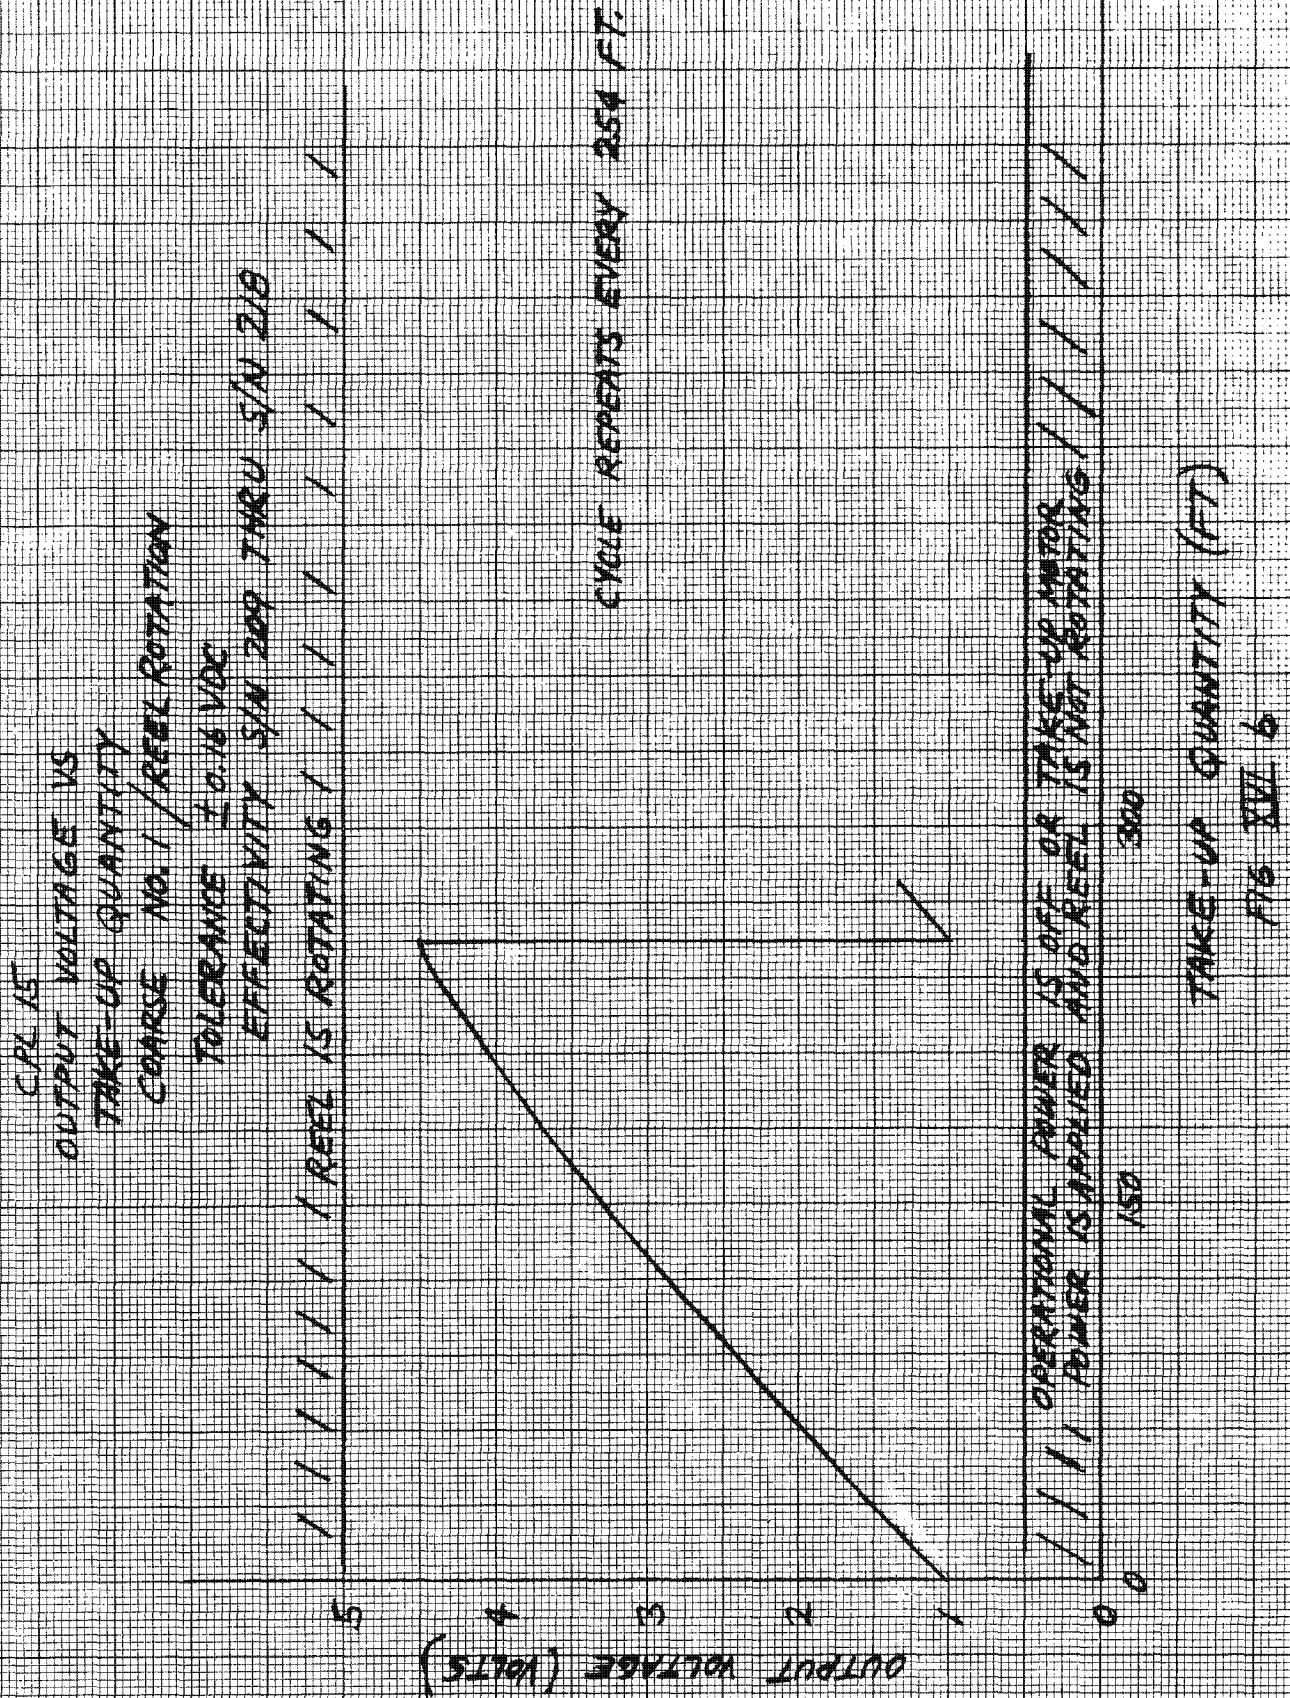 CPL 15
OUTPUT VOLTAGE VS
TAKE-UP QUANTITY
COARSE NO. 1 / REEL ROTATION
TOLERANCE ±0.16 VDC
EFFECTIVITY S/N 209 THRU S/N 218
REEL IS ROTATING
CYCLE REPEATS EVERY 254 FT.
OPERATIONAL POWER IS OFF OR TAKE-UP MOTOR
POWER IS APPLIED AND REEL IS NOT ROTATING
OUTPUT VOLTAGE (VOLTS)
5
4
3
2
1
0
0
150
300
TAKE-UP QUANTITY (FT)
FIG XVI b